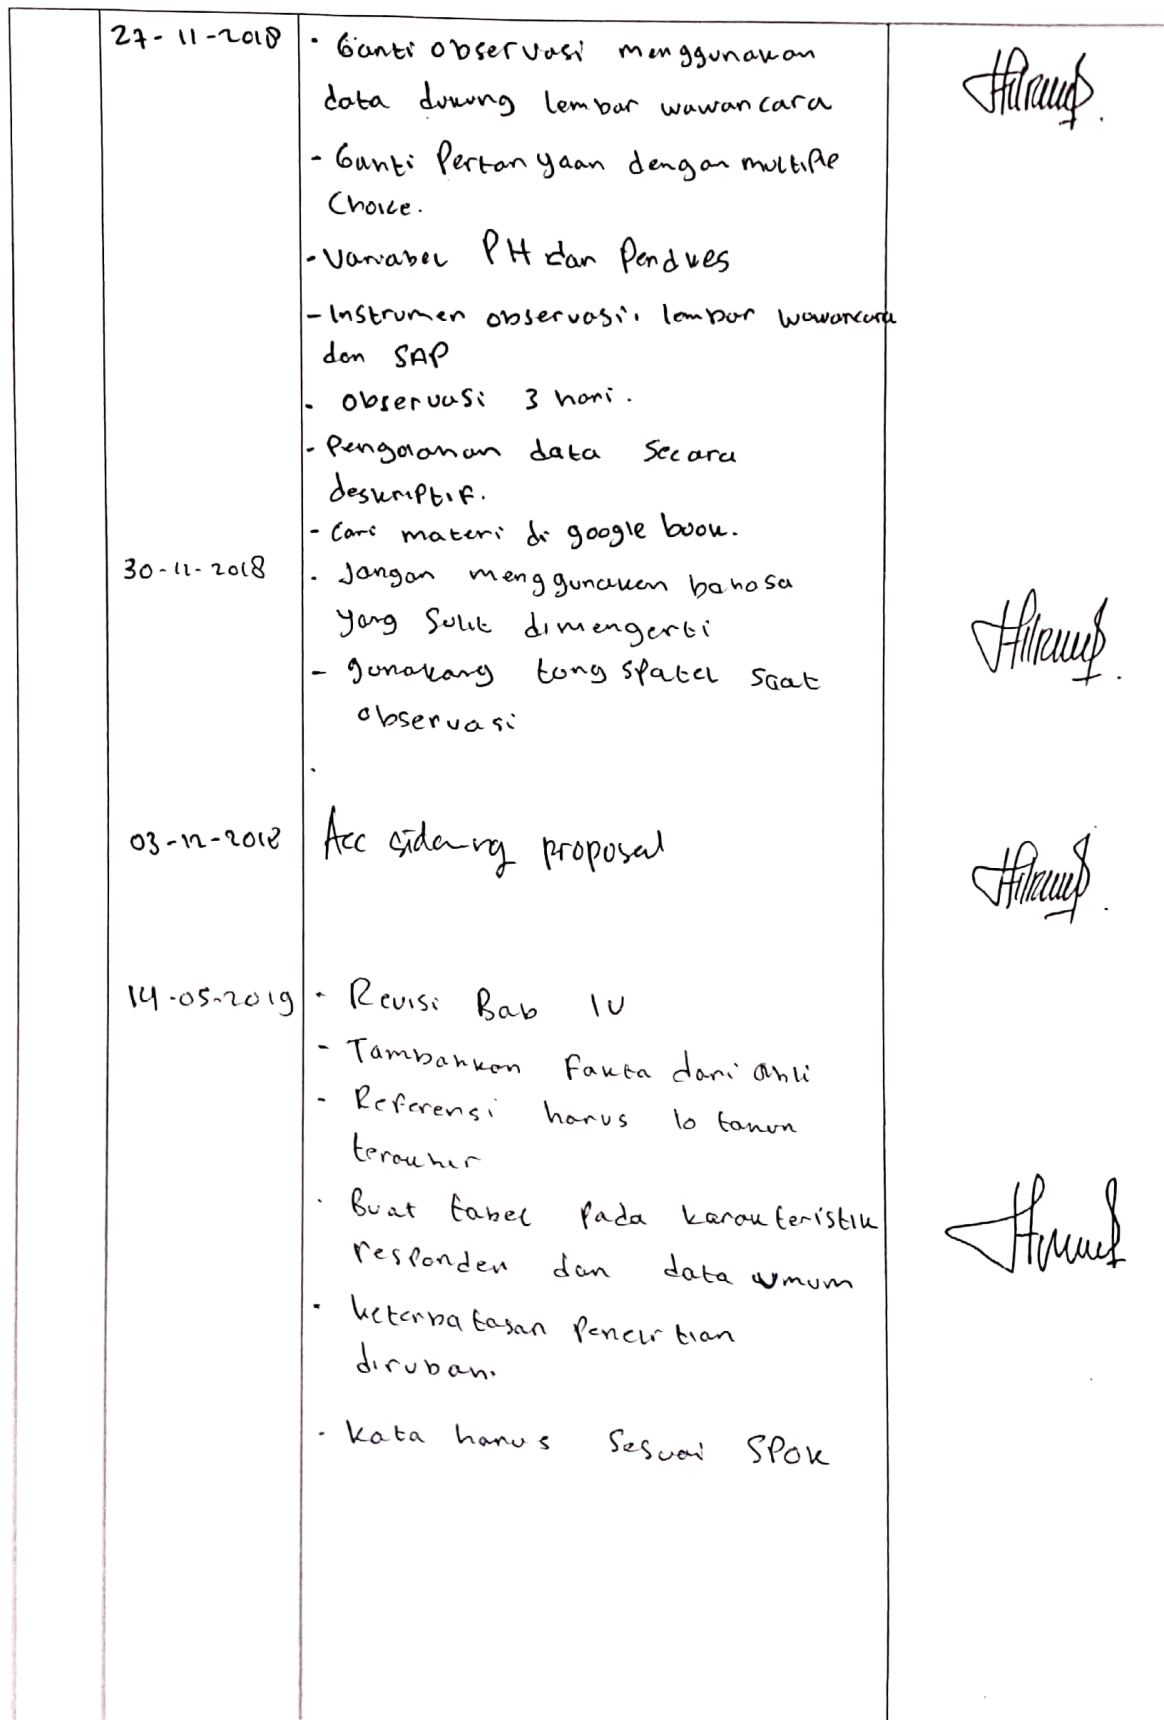 27-11-2018
- Ganti observasi menggunakan
data dukung lembar wawancara
- Ganti Pertanyaan dengan multiple
Choice.
- Variabel PH dan Pendkes
- Instrumen observasi, lembar wawancara
dan SAP
- observasi 3 hari.
- Pengolahan data secara
deskriptif.
- Cari materi di google book.
30-11-2018
- Jangan menggunakan bahasa
yang Sulit dimengerti
- gunakang tong spatel saat
observasi
03-12-2018
Acc sidang proposal
14-05-2019
- Revisi Bab IV
- Tambahkan Fakta dari ahli
- Referensi harus 10 tahun
terakhir
- Buat tabel pada karakteristik
responden dan data umum
- keterbatasan Penelitian
dirubah.
- kata harus Sesuai SPOK